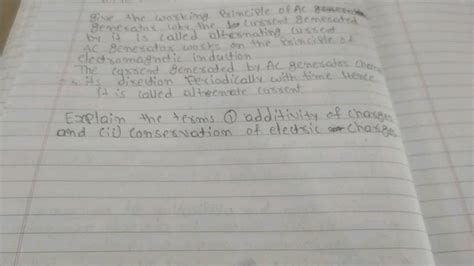 Give the working Principle of AC
Generator why the current Generated
by it is called alternating current
AC Generator works on the Principle of
electromagnetic induction
The current Generated by AC Generator
its direction Periodically with time Hence
It is called alternate current
Explain the terms ① additivity of charges
and (ii) conservation of electric charges